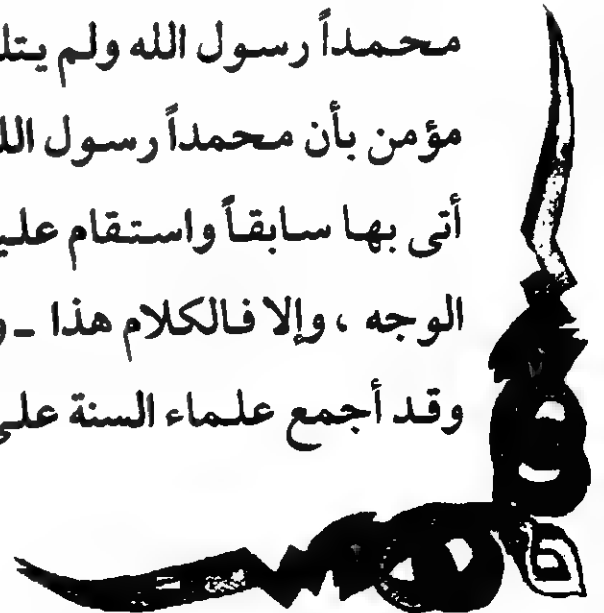 محمداً رسول الله ولم يتلـ
مؤمن بأن محمداً رسول اللـ
أتى بها سابقاً واستقام عليـ
الوجه ، وإلا فالكلام هذا ـ و
وقد أجمع علماء السنة علـ